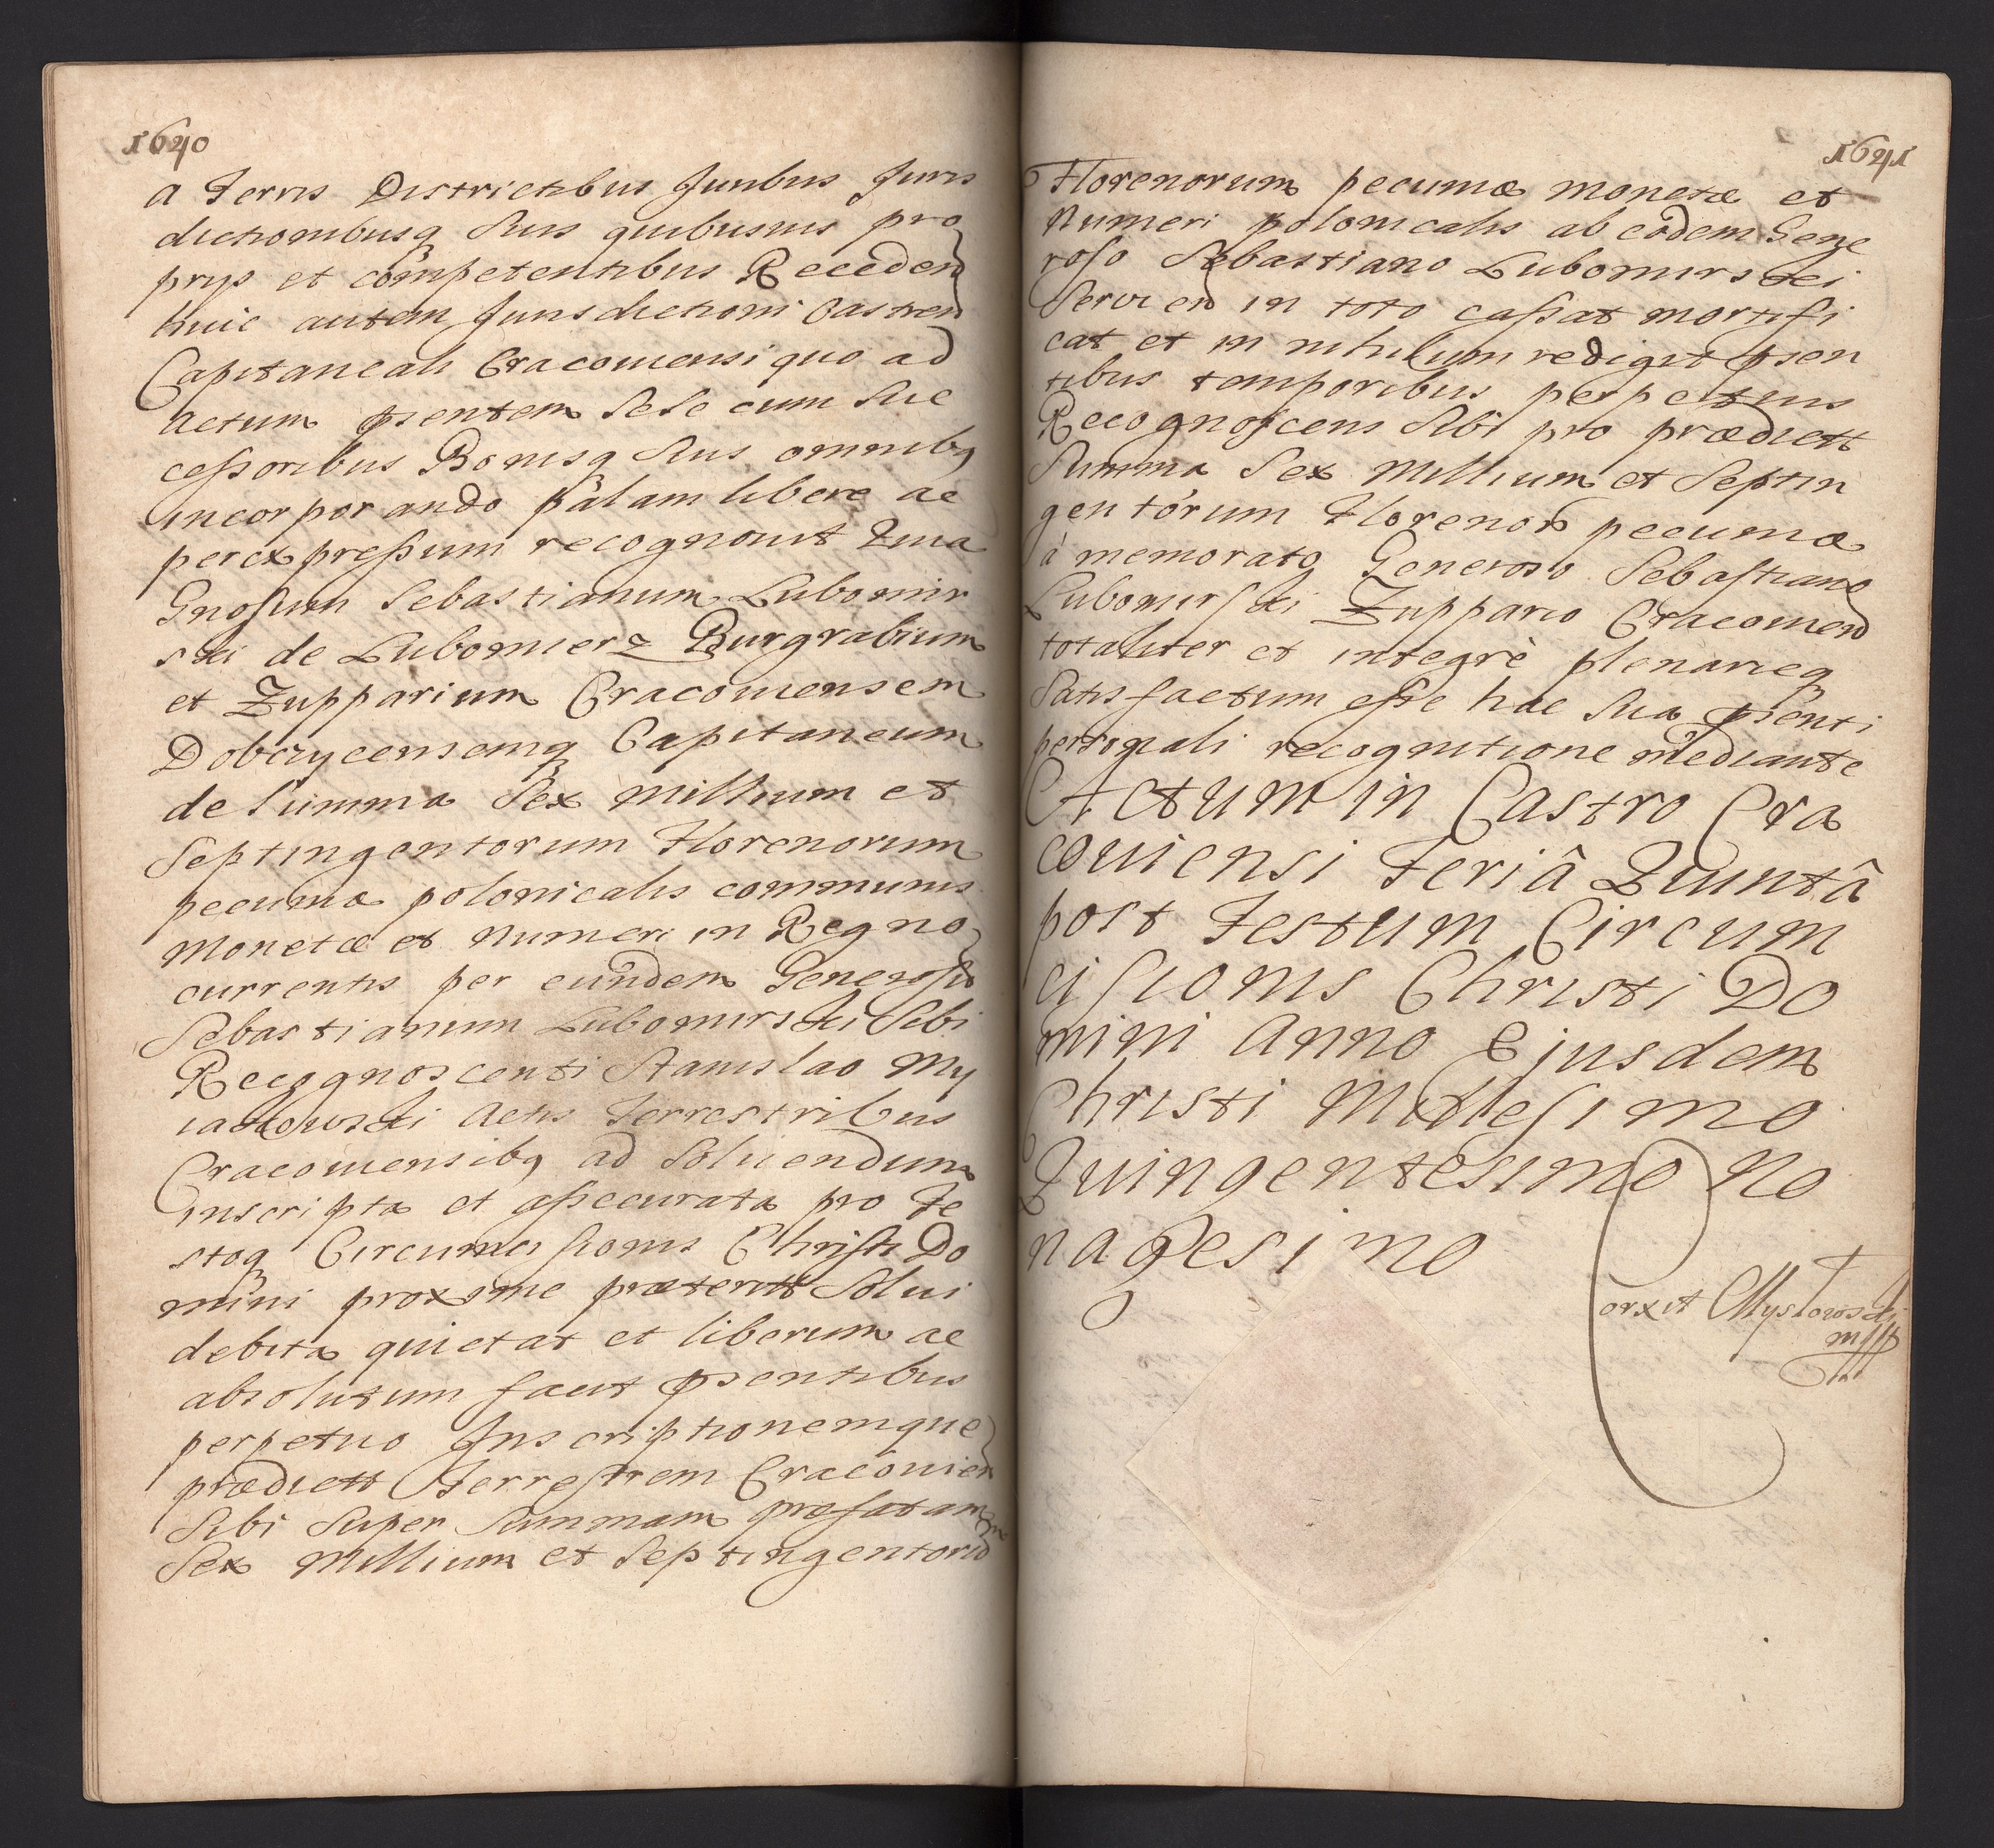 1640
a Terris Districtibus Juribus Juris
dictionibusq Suis quibusuis pro
prijs et competentibus Receden
huic autem Jurisdictioni Castren
Capitaneali Cracouiensi quo ad
Actum psentem Sese cum Suc
cessoribus Bonisq Suis omnibq
incorporando palam libere ac
per expressum recognouit Quia
Gnosum Sebastianum Lubomir
ski de Lubomierz Burgrabium
et Zupparium Cracouiensem
Dobczycensemq Capitaneum
de Summa Sex millium et
Septingentorum Florenorum
pecuniæ polonicalis communis
Monetæ et Numeri in Regno
currentis per eundem Generosu
Sebastianum Lubomirski Sibi
Recognoscenti Stanislao My
iakowski Actis Terrestribus
Cracouiensibq ad Soluendum
inscripta et assecurata pro Fe
stoq Circumcisionis Christi Do
mini proxime præteritt Solui
debita quietat et liberum ac
absolutum facit psentibus
perpetuo Inscriptionemque
prædictt Terrestrem Cracouien
Sibi Super Summam præfatam
Sex Millium et Septingentoru
1641
Florenorum pecuniæ monetæ et
Numeri polonicalis ab eodem Gene
roso Sebastiano Lubomirski
Seruien in toto cassat mortifi
cat et in nihilum redigit psen
tibus temporibus perpetuis
Recognoscens Sibi pro prædictt
Summa Sex Millium et Septin
gentorum Florenor pecuniæ
à memorato Generoso Sebastiano
Lubomirski Zuppario Cracouien
totaliter et integrè plenarieq
Satisfactum esse hac Sua psenti
personali recognitione mediante
Actum in Castro Cra
couiensi Feriâ Quintâ
post Festum Circum
cisionis Christi Do
mini Anno Ejusdem
Christi Millesimo
Quingentesimo No
nagesimo
Corxit Mystowski
mpp